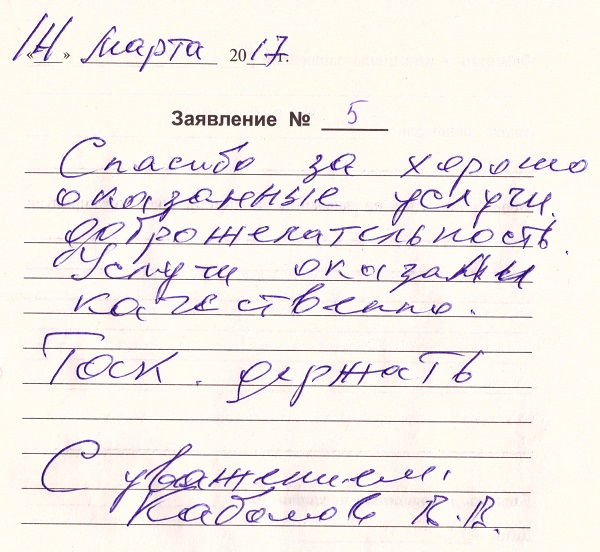 «14» марта 2017 г.
Заявление № 5
Спасибо за хорошо
оказанные услуги.
доброжелательность.
Услуги оказаны
качественно.
Так держать
С уважением.
В.В.